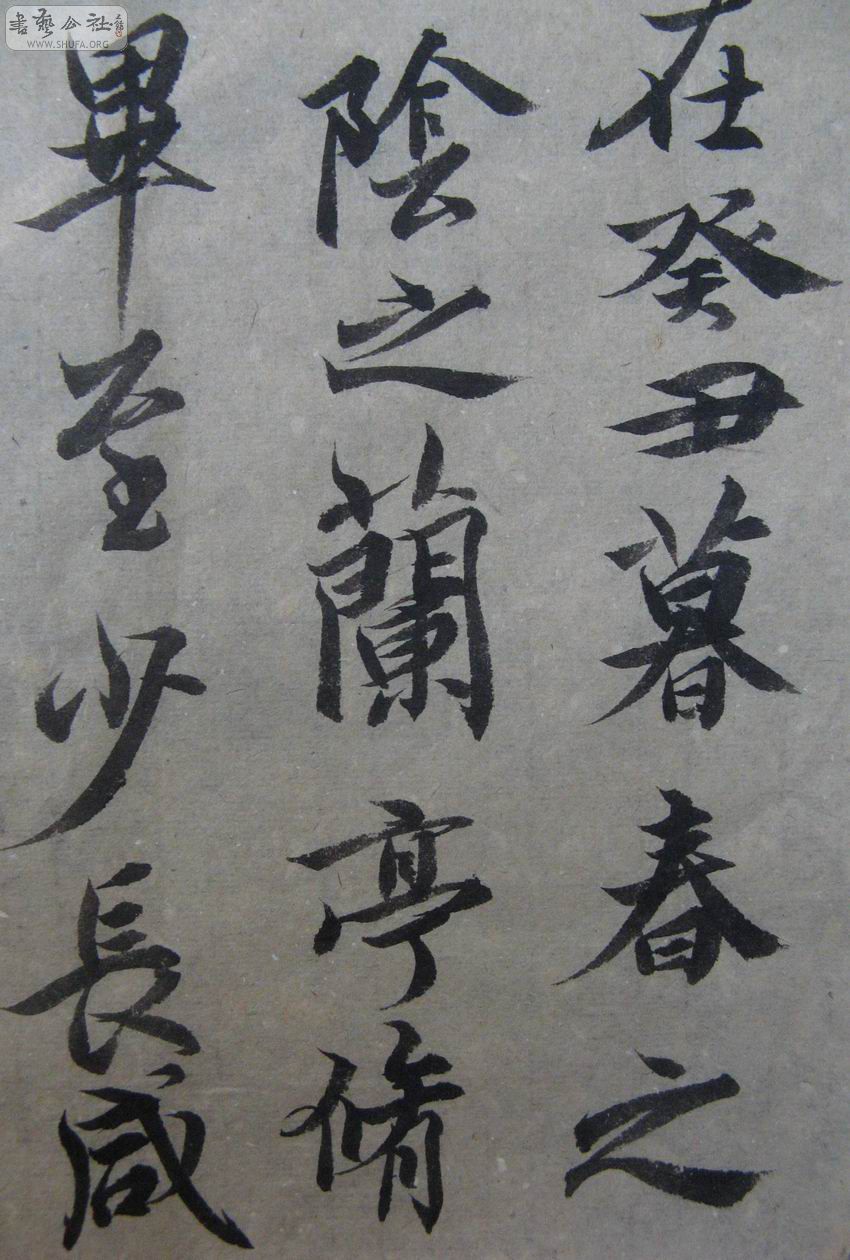 在癸丑暮春之
陰之蘭亭脩
畢至少長咸
書藝公社
WWW.SHUFA.ORG